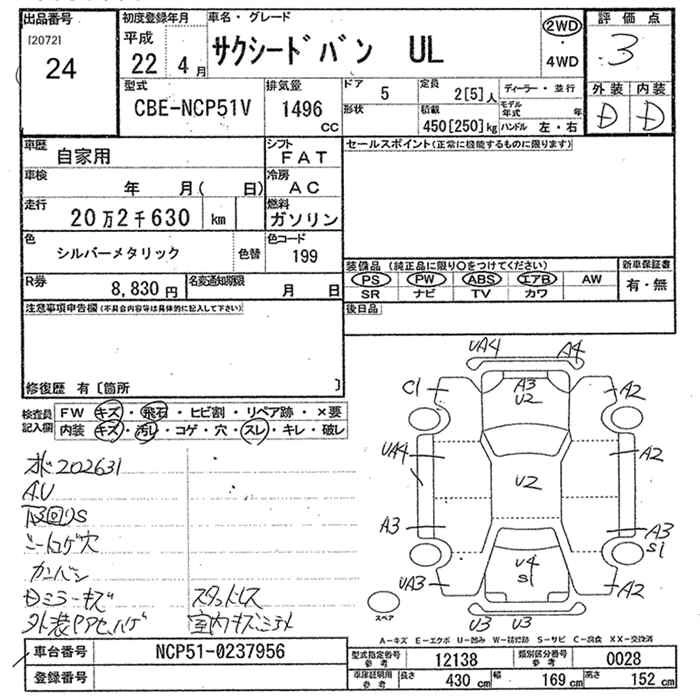 出品番号
[2072]
24
初度登録年月
平成
22 4月
車名・グレード
サクシードバン UL
2WD
・
4WD
評価点
3
型式
CBE-NCP51V
排気量
1496
CC
ドア
5
定員
2[5]人
ディーラー・並行
形状
積載
450[250]kg
モデル年式
年
ハンドル 左・右
外装 内装
D D
車歴
自家用
シフト
FAT
セールスポイント(正常に機能するものに限ります)
車検
年 月( 日)
冷房
AC
走行
20万2千630 km
燃料
ガソリン
色
シルバーメタリック
色替
色コード
199
装備品 (純正品に限り○をつけてください)
新車保証書
PS PW ABS エアB AW
有・無
SR ナビ TV カワ
R券
8,830円
名変通知期限
月 日
後日品
注意事項申告欄(不具合内容等は具体的に記入して下さい)
修復歴 有〔箇所 〕
検査員
記入欄
FW キズ・飛石・ヒビ割・リペア跡・×要
内装 キズ・汚レ・コゲ・穴・スレ・キレ・破レ
202631
A.U
シートコゲ穴
カンバン
スタットレス
室内キズ
UA4 A4
C1 A3 A2
U2
UA4 U2 A2
A3 A3
S1
U4
S1
UA3 A2
U3 U3
スペア
A-キズ E-エクボ U-凹み W-補修跡 S-サビ C-腐食 XX-交換済
車台番号
NCP51-0237956
登録番号
型式指定番号
参考
12138
類別区分番号
参考
0028
車庫証明用
参考
長さ
430 cm
幅
169 cm
高さ
152 cm